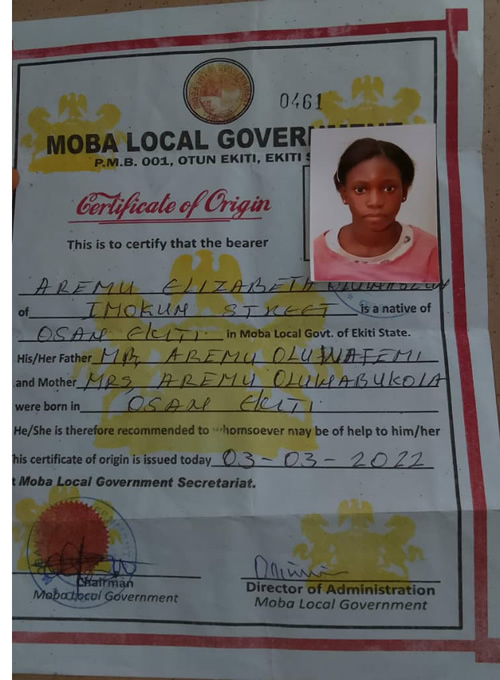 0461
MOBA LOCAL GOVERNMENT
P.M.B. 001, OTUN EKITI, EKITI S
Certificate of Origin
This is to certify that the bearer
AREMU ELIZABETH
of IMOKUN STREET is a native of
OSAN EKITI in Moba Local Govt. of Ekiti State.
His/Her Father MR, AREMU OLUWAFEMI
and Mother MRS AREMU OLUWABUKOLA
were born in OSAN EKITI
He/She is therefore recommended to whomsoever may be of help to him/her
his certificate of origin is issued today 03-03-2022
t Moba Local Government Secretariat.
Chairman
Moba Local Government
Director of Administration
Moba Local Government